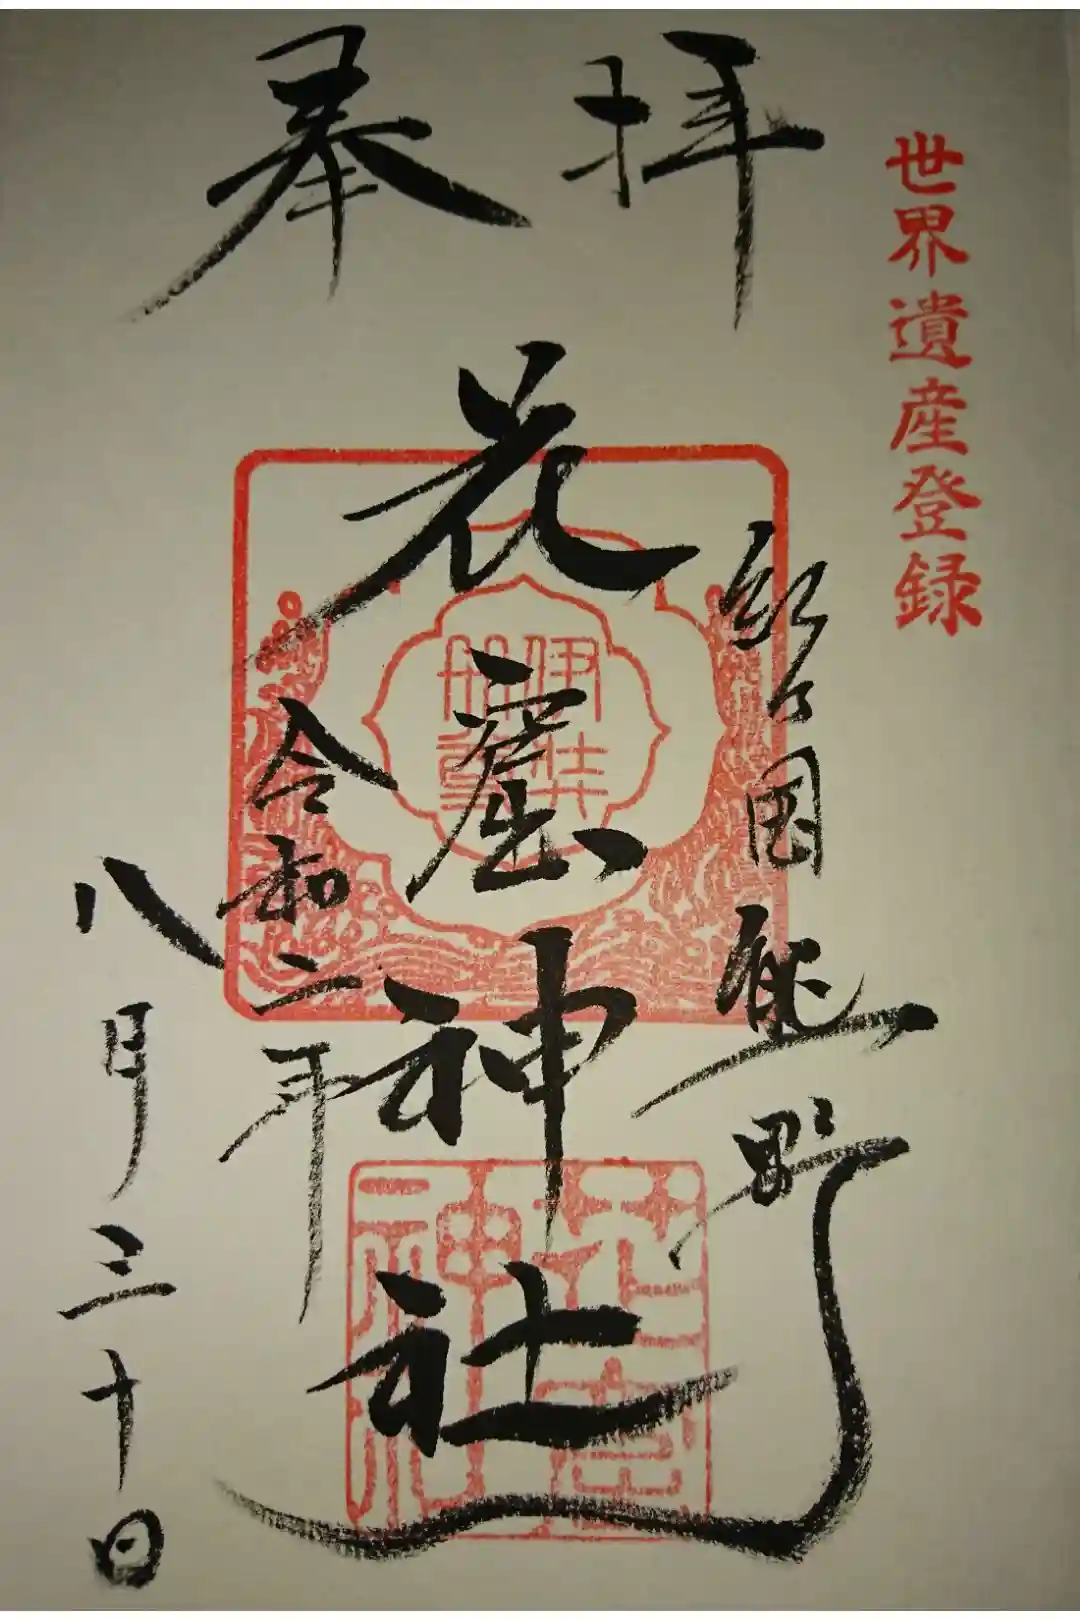 奉拝
世界遺産登録
紀伊国熊野
花窟神社
令和二年
八月三十日
伊弉
冊尊
花窟
神社